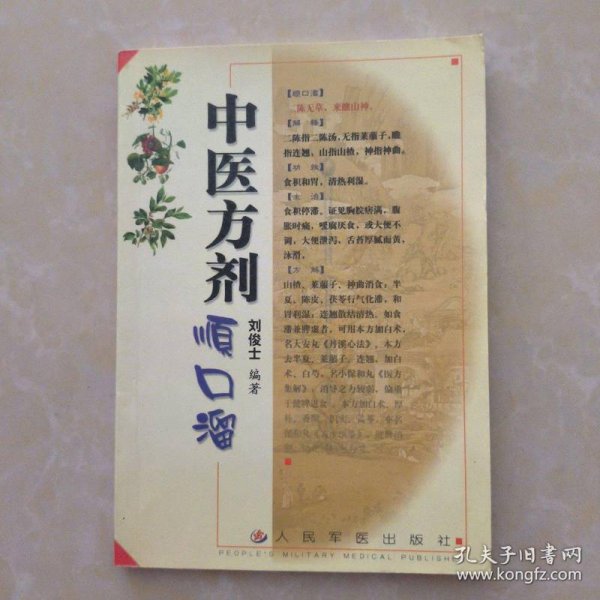 中医方剂
順口溜
刘俊士 编著
【顺口溜】
二陈无草，来憔山神。
【解 释】
二陈指二陈汤，无指莱菔子，憔
指连翘，山指山楂，神指神曲。
【功 效】
食积和胃，清热利湿。
【主 治】
食积停滞，证见胸脘痞满，腹
胀时痛，嗳腐厌食，或大便不
调，大便泄泻，舌苔厚腻而黄，
脉滑。
【方 解】
山楂、莱菔子、神曲消食；半
夏、陈皮、茯苓行气化滞，和
胃利湿；连翘散结清热。如食
滞兼脾虚者，可用本方加白术，
名大安丸《丹溪心法》。本方
去半夏、莱菔子、连翘，加白
术、白芍，名小保和丸《医方
集解》，消导之力较弱，偏重
于健脾进食。本方加白术、厚
朴、香附、枳实、黄芩、
人民军医出版社
PEOPLE'S MILITARY MEDICAL PUBLISH
孔夫子旧书网
www.kongfz.com